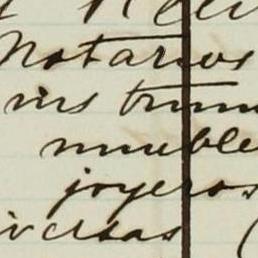 Notarios
ins trum
mueble
joyeros
iversas (